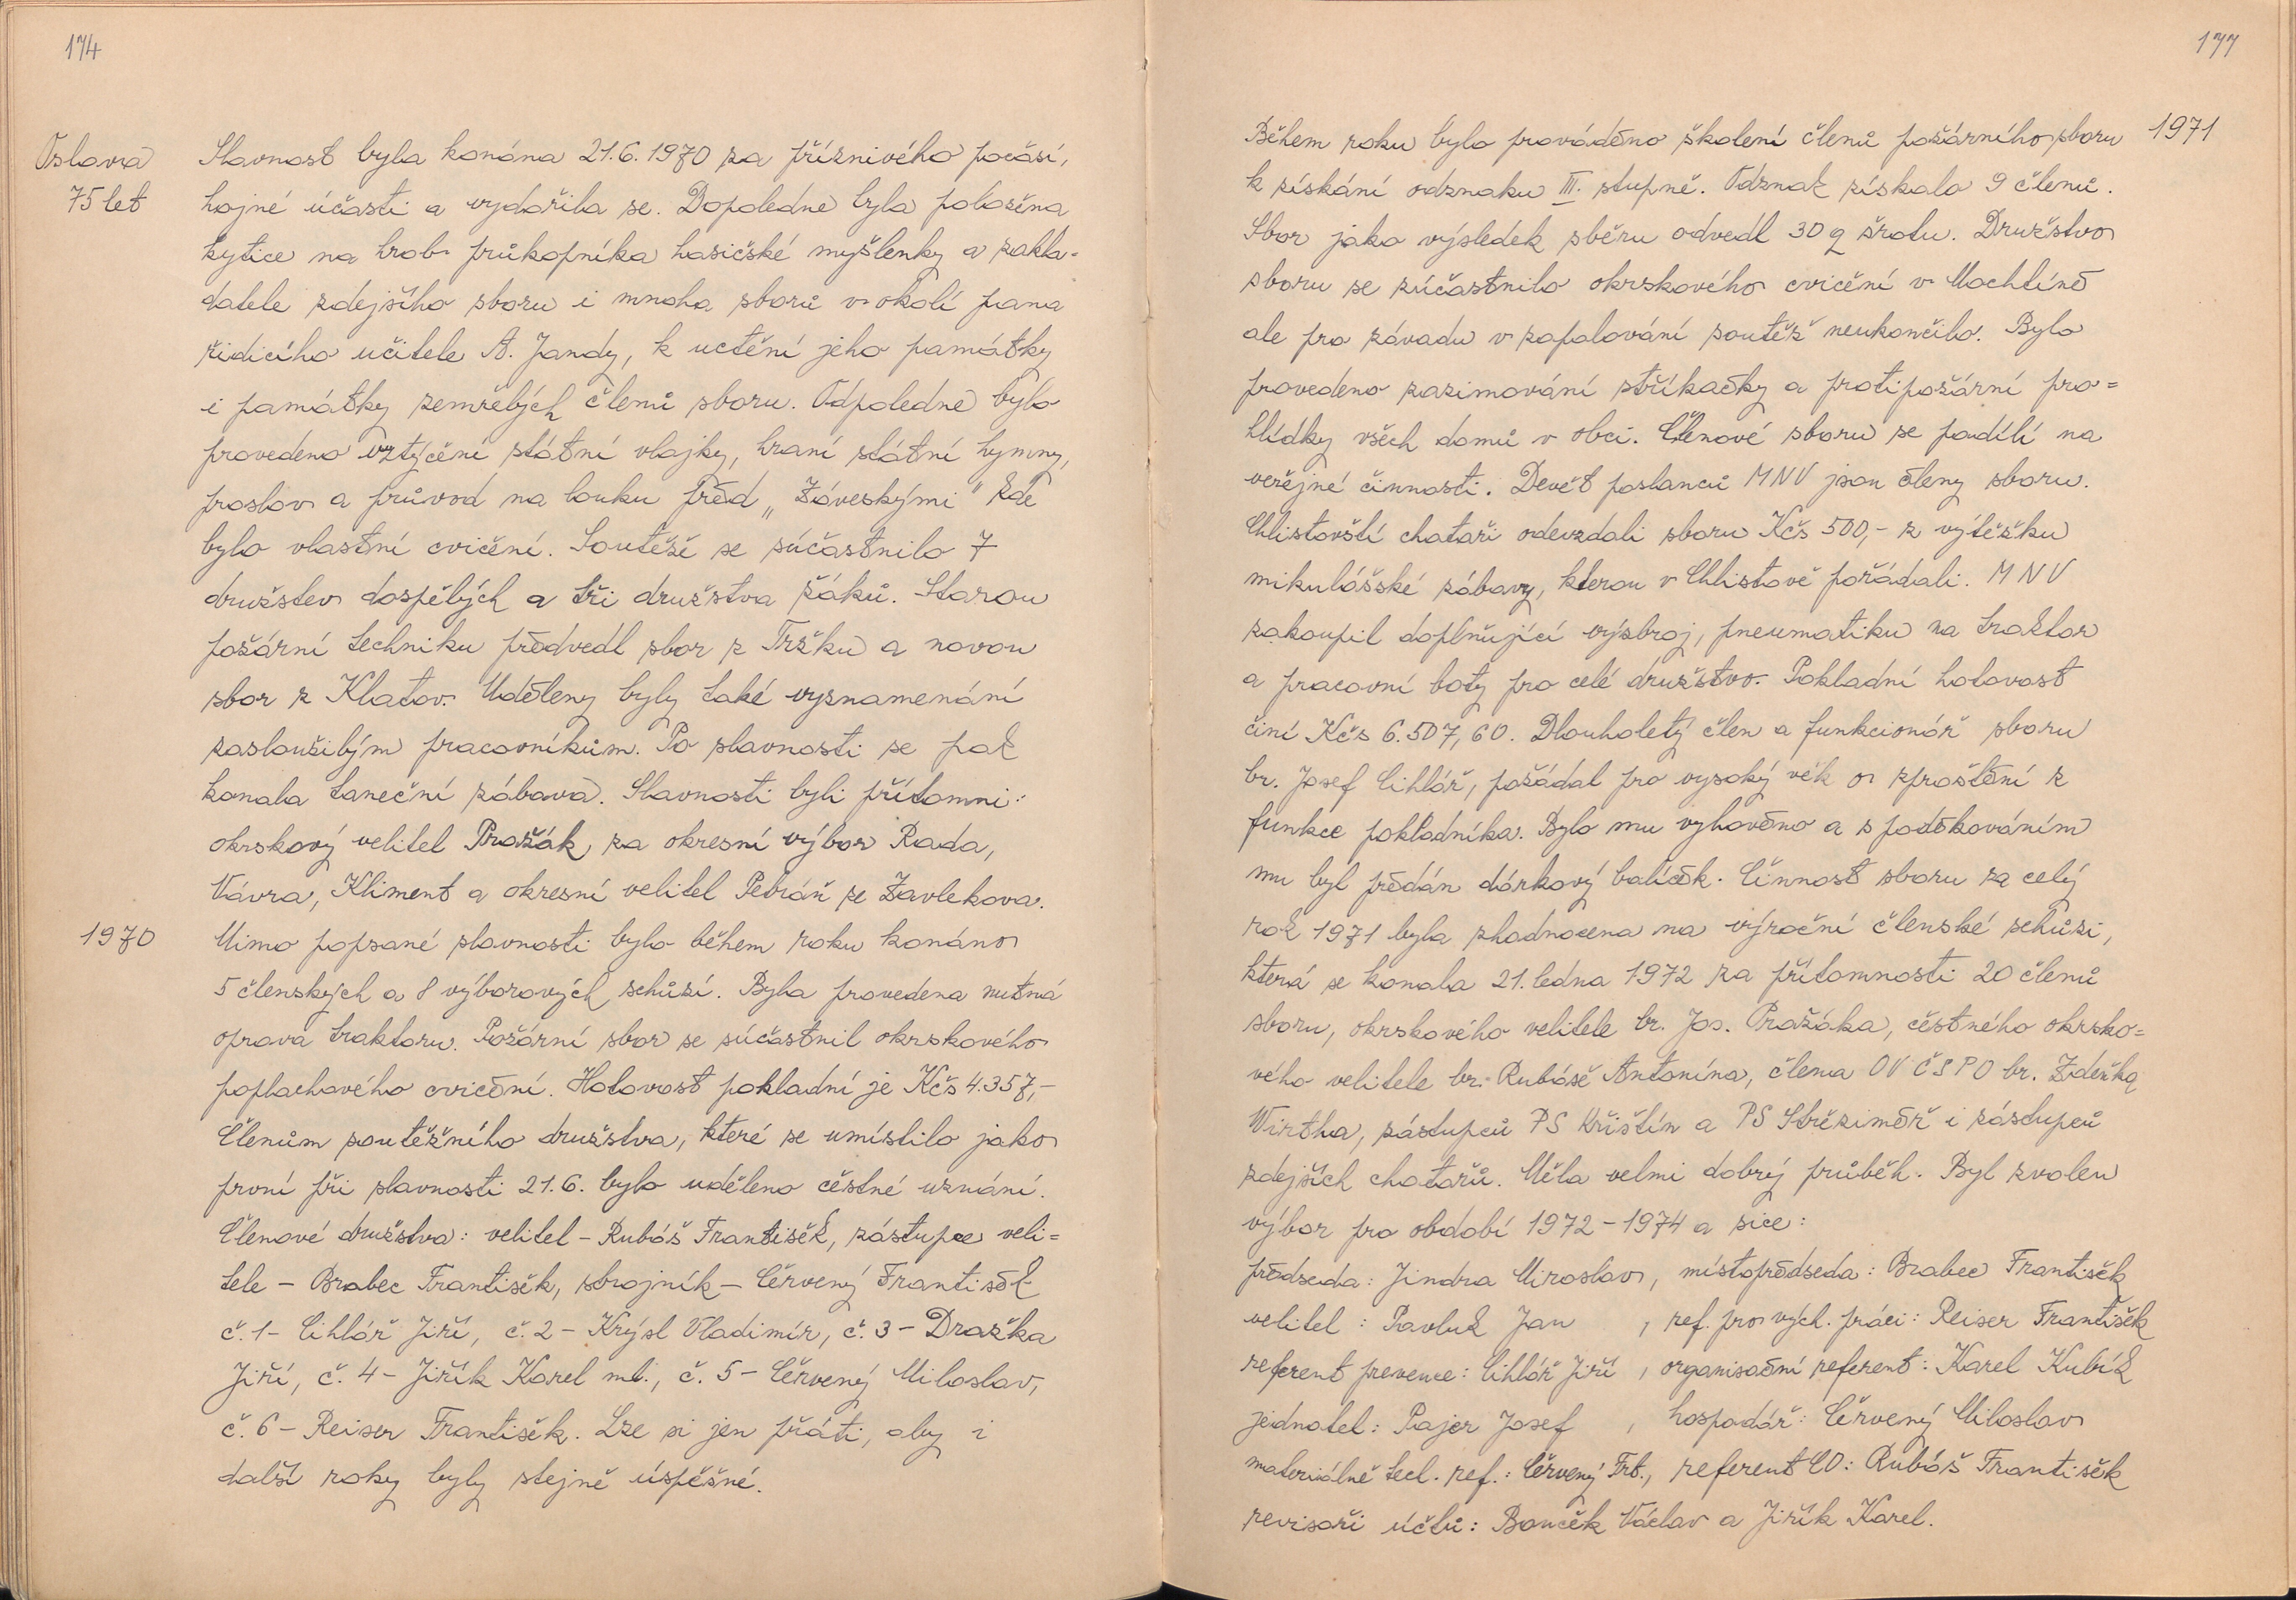 174
Oslava
75 let
Slavnost byla konána 21.6.1970 za příznivého počasí,
hojné účasti a vydařila se. Dopoledne byla položena
kytice na hrob průkopníka hasičské myšlenky a zakla-
datele zdejšího sboru i mnoha sborů v okolí pana
řidícího učitele A. Jandy, k uctění jeho památky
i památky zemřelých členů sboru. Odpoledne bylo
provedeno vztýčení státní vlajky, hraní státní hymny,
proslov a průvod na louku před „Záveskými" kde
bylo vlastní cvičení. Soutěže se súčastnilo 7
družstev dospělých a tři družstva žáků. Starou
požární techniku předvedl sbor z Tržku a novou
sbor z Klatov. Uděleny byly také vyznamenání
zasloužilým pracovníkům. Po slavnosti se pak
konala taneční zábava. Slavnosti byli přítomni:
okrskový velitel Pražák, za okresní výbor Rada,
Vávra, Kliment a okresní velitel Petráň ze Zavlekova.
1970
Mimo popsané slavnosti bylo během roku konáno
5 členských a 8 výborových schůzí. Byla provedena nutná
oprava traktoru. Požární sbor se súčastnil okrskového
poplachového cvičení. Hotovost pokladní je Kčs 4.357,-
Členům soutěžního družstva, které se umístilo jako
první při slavnosti 21.6. bylo uděleno čestné uznání.
Členové družstva: velitel - Rubáš František, zástupce veli=
tele - Brabec František, strojník - Červený František
č.1 - Cihlář Jiří, č.2 - Krýsl Vladimír, č.3 - Dražka
Jiří, č.4 - Jiřík Karel ml., č.5 - Červený Miloslav,
č.6 - Reiser František. Lze si jen přáti, aby i
další roky byly stejně úspěšné.
177
1971
Během roku bylo prováděno školení členů požárního sboru
k získání odznaku III. stupně. Odznak získalo 9 členů.
Sbor jako výsledek sběru odvedl 30 q šrotu. Družstvo
sboru se zúčastnilo okrskového cvičení v Mochtíně
ale pro závadu v zapalování soutěž neukončilo. Bylo
provedeno zazimování stříkačky a protipožární pro=
hlídky všech domů v obci. Členové sboru se podílí na
veřejné činnosti. Devět poslanců MNV jsou členy sboru.
Chlistovští chataři odevzdali sboru Kčs 500,- z výtěžku
mikulášské zábavy, kterou v Chlistově pořádali. MNV
zakoupil doplňující výzbroj, pneumatiku na traktor
a pracovní boty pro celé družstvo. Pokladní hotovost
činí Kčs 6.507,60. Dlouholetý člen a funkcionář sboru
br. Josef Cihlář, požádal pro vysoký věk o zproštění z
funkce pokladníka. Bylo mu vyhověno a s poděkováním
mu byl předán dárkový balíček. Činnost sboru za celý
rok 1971 byla zhodnocena na výroční členské schůzi,
která se konala 21. ledna 1972 za přítomnosti 20 členů
sboru, okrskového velitele br. Jos. Pražáka, čestného okrsko=
vého velitele br. Rubáše Antonína, člena OV ČSPO br. Zdeňka
Wirtha, zástupců PS Křištín a PS Střeziměř i zástupců
zdejších chatařů. Měla velmi dobrý průběh. Byl zvolen
výbor pro období 1972-1974 a sice:
předseda: Jindra Miroslav, místopředseda: Brabec František
velitel: Pavluk Jan, ref. pro vých. práci: Reiser František
referent prevence: Cihlář Jiří, organisační referent: Karel Kubík
jednatel: Pajer Josef, hospodář: Červený Miloslav
materiálně tech. ref.: Červený Frt., referent CO: Rubáš František
revisoři účtů: Bouček Václav a Jiřík Karel.